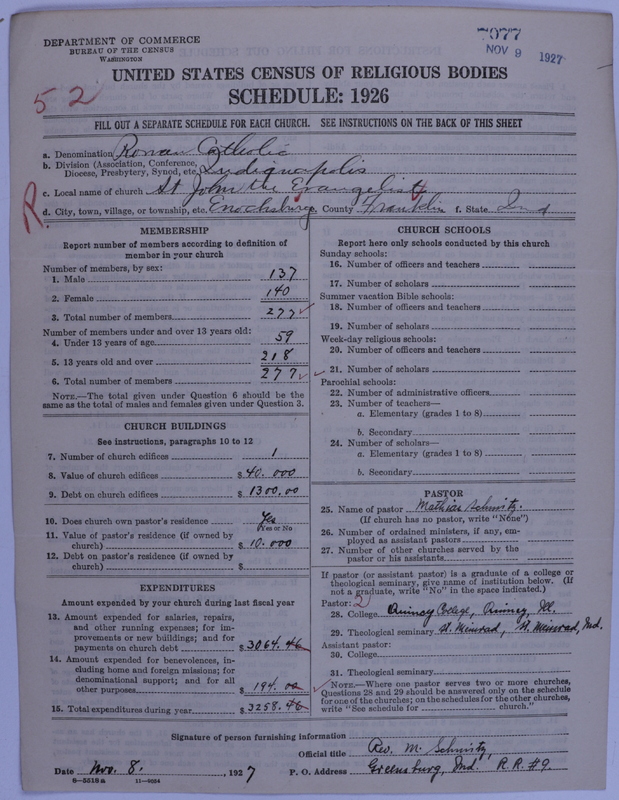 DEPARTMENT OF COMMERCE
BUREAU OF THE CENSUS
WASHINGTON
7977
NOV 9 1927
UNITED STATES CENSUS OF RELIGIOUS BODIES
SCHEDULE: 1926
52
FILL OUT A SEPARATE SCHEDULE FOR EACH CHURCH. SEE INSTRUCTIONS ON THE BACK OF THIS SHEET
a. Denomination Roman Catholic
b. Division (Association, Conference, Diocese, Presbytery, Synod, etc. Indianapolis
c. Local name of church St John the Evangelist
R.
d. City, town, village, or township, etc. Enochsburg e. County Franklin f. State Ind
MEMBERSHIP
Report number of members according to definition of
member in your church
Number of members, by sex:
1. Male 137
2. Female 140
3. Total number of members 277
Number of members under and over 13 years old:
4. Under 13 years of age 59
5. 13 years old and over 218
6. Total number of members 277
NOTE.—The total given under Question 6 should be
same as the total of males and females given under Question 3.
CHURCH BUILDINGS
See instructions, paragraphs 10 to 12
7. Number of church edifices 1
8. Value of church edifices $ 40.000
9. Debt on church edifices $ 1300.00
10. Does church own pastor's residence Yes
Yes or No
11. Value of pastor's residence (if owned by
church) $ 10.000
12. Debt on pastor's residence (if owned by
church) $
EXPENDITURES
Amount expended by your church during last fiscal year
13. Amount expended for salaries, repairs,
and other running expenses; for im-
provements or new buildings; and for
payments on church debt $ 3064.46
14. Amount expended for benevolences, in-
cluding home and foreign missions; for
denominational support; and for all
other purposes $ 194.00
15. Total expenditures during year $ 3258.46
CHURCH SCHOOLS
Report here only schools conducted by this church
Sunday schools:
16. Number of officers and teachers
17. Number of scholars
Summer vacation Bible schools:
18. Number of officers and teachers
19. Number of scholars
Week-day religious schools:
20. Number of officers and teachers
21. Number of scholars
Parochial schools:
22. Number of administrative officers
23. Number of teachers—
a. Elementary (grades 1 to 8)
b. Secondary
24. Number of scholars—
a. Elementary (grades 1 to 8)
b. Secondary
PASTOR
25. Name of pastor Mathias Schmitz.
(If church has no pastor, write "None")
26. Number of ordained ministers, if any, em-
ployed as assistant pastors
27. Number of other churches served by the
pastor or his assistants
If pastor (or assistant pastor) is a graduate of a college or
theological seminary, give name of institution below. (If
not a graduate, write "No" in the space indicated.)
Pastor: 2
28. College Quincy College, Quincy, Ill.
29. Theological seminary St. Meinrad, St. Meinrad, Ind.
Assistant pastor:
30. College
31. Theological seminary
NOTE.—Where one pastor serves two or more churches,
Questions 28 and 29 should be answered only on the schedule
for one of the churches; on the schedules for the other churches,
write "See schedule for church."
Signature of person furnishing information
Official title Rev. M. Schmitz,
Date Nov. 8. 1927 P. O. Address Greensburg, Ind. R.R. #9.
8—5518a 11—9054